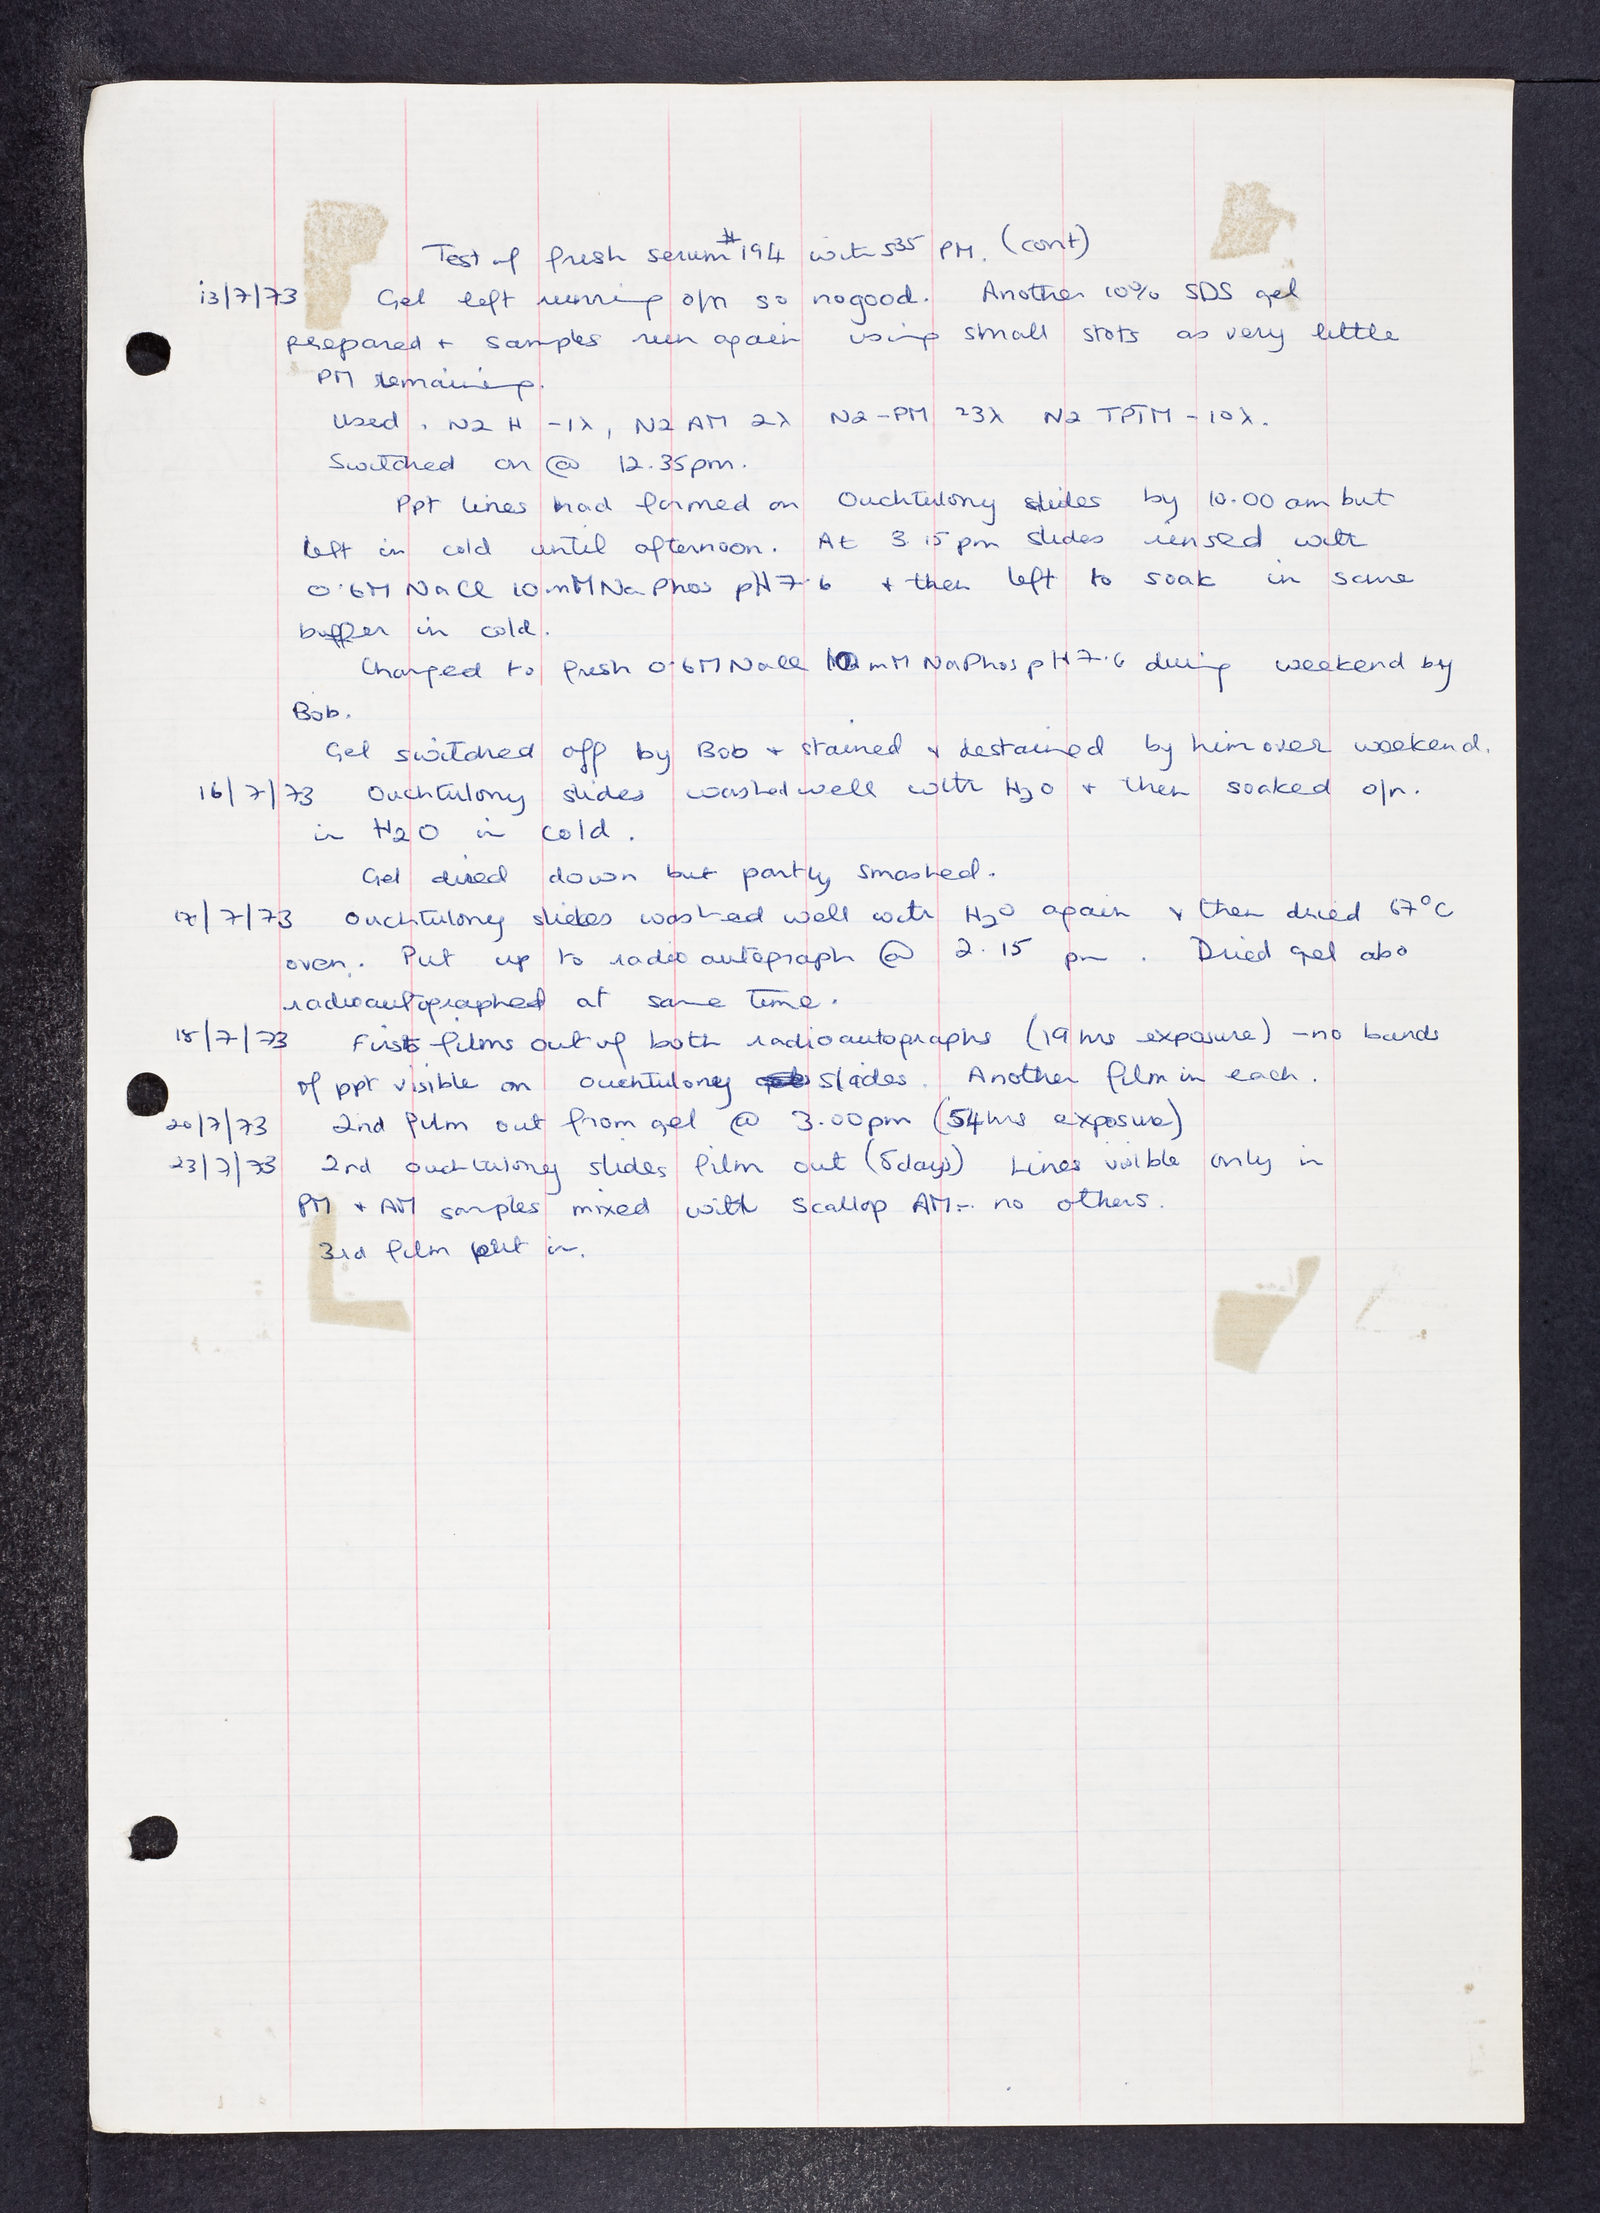 Test of fresh serum #194 with S35 PM. (cont)
13/7/73 Gel left running o/n so no good. Another 10% SDS gel
prepared + samples run again using small slots as very little
PM remaining.
Used. N2 H -1λ, N2 AM 2λ N2-PM 23λ N2 TPTM - 10λ.
Switched on @ 12.35pm.
Ppt lines had formed on Ouchtulony slides by 10.00 am but
left in cold until afternoon. At 3.15pm slides rinsed with
0.6M NaCl 10mM Na Phos pH 7.6 + then left to soak in same
buffer in cold.
Changed to fresh 0.6M NaCl 10mM NaPhos pH 7.6 during weekend by
Bob.
Gel switched off by Bob + stained + destained by him over weekend.
16/7/73 Ouchtulony slides washed well with H2O + then soaked o/n.
in H2O in cold.
Gel dried down but partly smashed.
17/7/73 Ouchtulony slides washed well with H2O again + then dried 67°C
oven. Put up to radioautograph @ 2.15 pm. Dried gel also
radioautographed at same time.
18/7/73 First films out of both radioautographs (19 hrs exposure) - no bands
of ppt visible on Ouchtulony slides. Another film in each.
20/7/73 2nd film out from gel @ 3.00pm (54hrs exposure)
23/7/73 2nd ouchtulony slides film out (5days) Lines visible only in
PM + AM samples mixed with Scallop AM - no others.
3rd film put in.